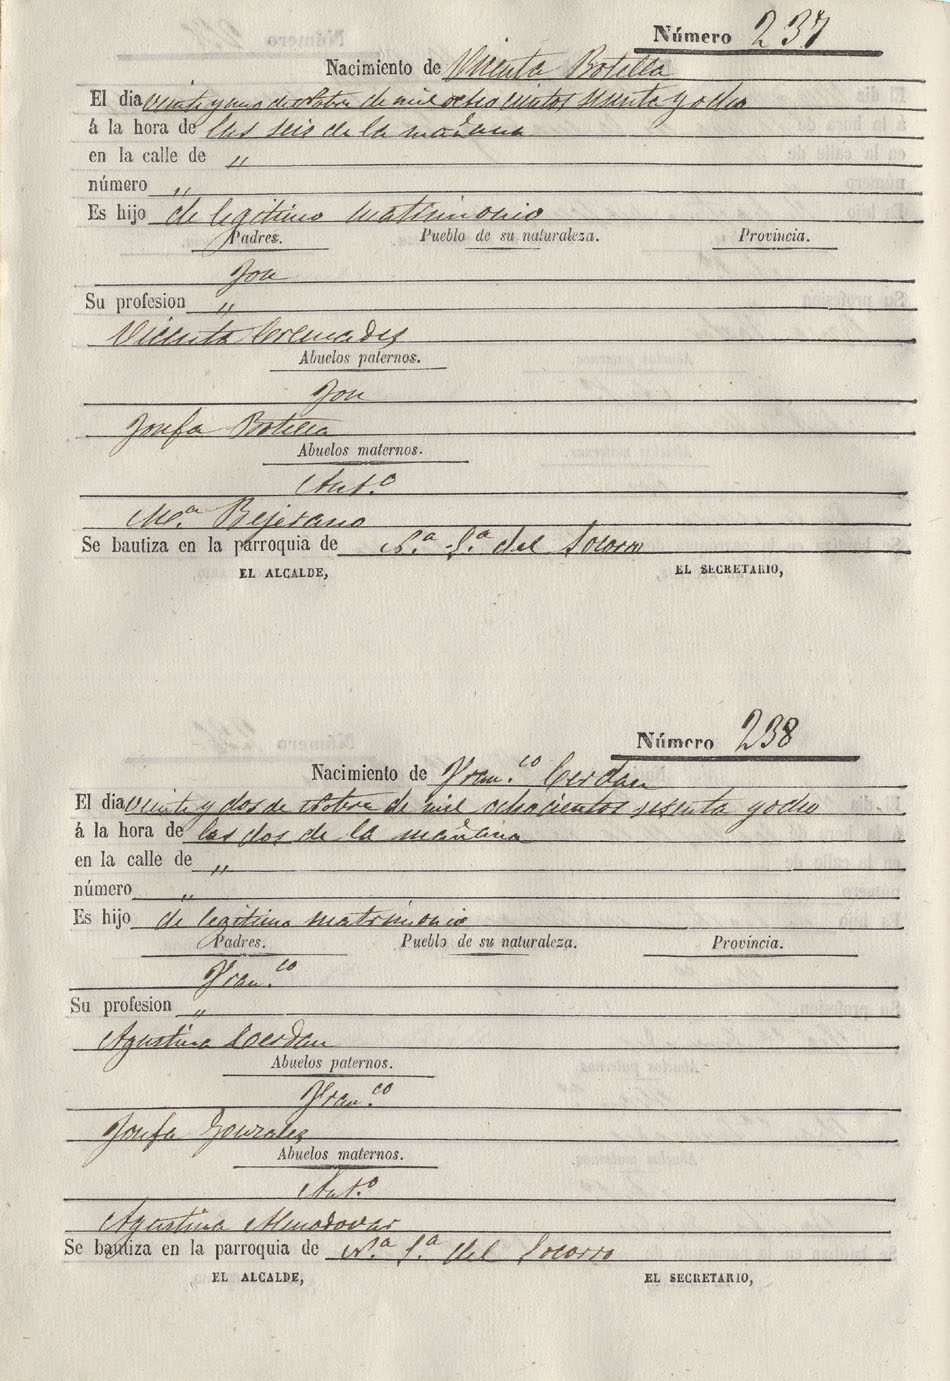 Número 237
Nacimiento de Vicenta Botella
El dia veinte y uno de Otobre de mil ochocientos sesenta y ocho
á la hora de las seis de la mañana
en la calle de "
número "
Es hijo de legitimo matrimonio
Padres. Pueblo de su naturaleza. Provincia.
Jose
Su profesion "
Vicenta Cremades
Abuelos paternos.
Jose
Josefa Botella
Abuelos maternos.
Ant.o
M.a Bejerano
Se bautiza en la parroquia de N.a S.a del Socorro
EL ALCALDE, EL SECRETARIO,
Número 238
Nacimiento de Fran.co Cerdan
El dia veinte y dos de Otobre de mil ochocientos sesenta y ocho
á la hora de las dos de la mañana
en la calle de "
número "
Es hijo de legitimo matrimonio
Padres. Pueblo de su naturaleza. Provincia.
Fran.co
Su profesion "
Agustina Cerdan
Abuelos paternos.
Fran.co
Josefa Gonzales
Abuelos maternos.
Ant.o
Agustina Almodovar
Se bautiza en la parroquia de N.a S.a del Socorro
EL ALCALDE, EL SECRETARIO,